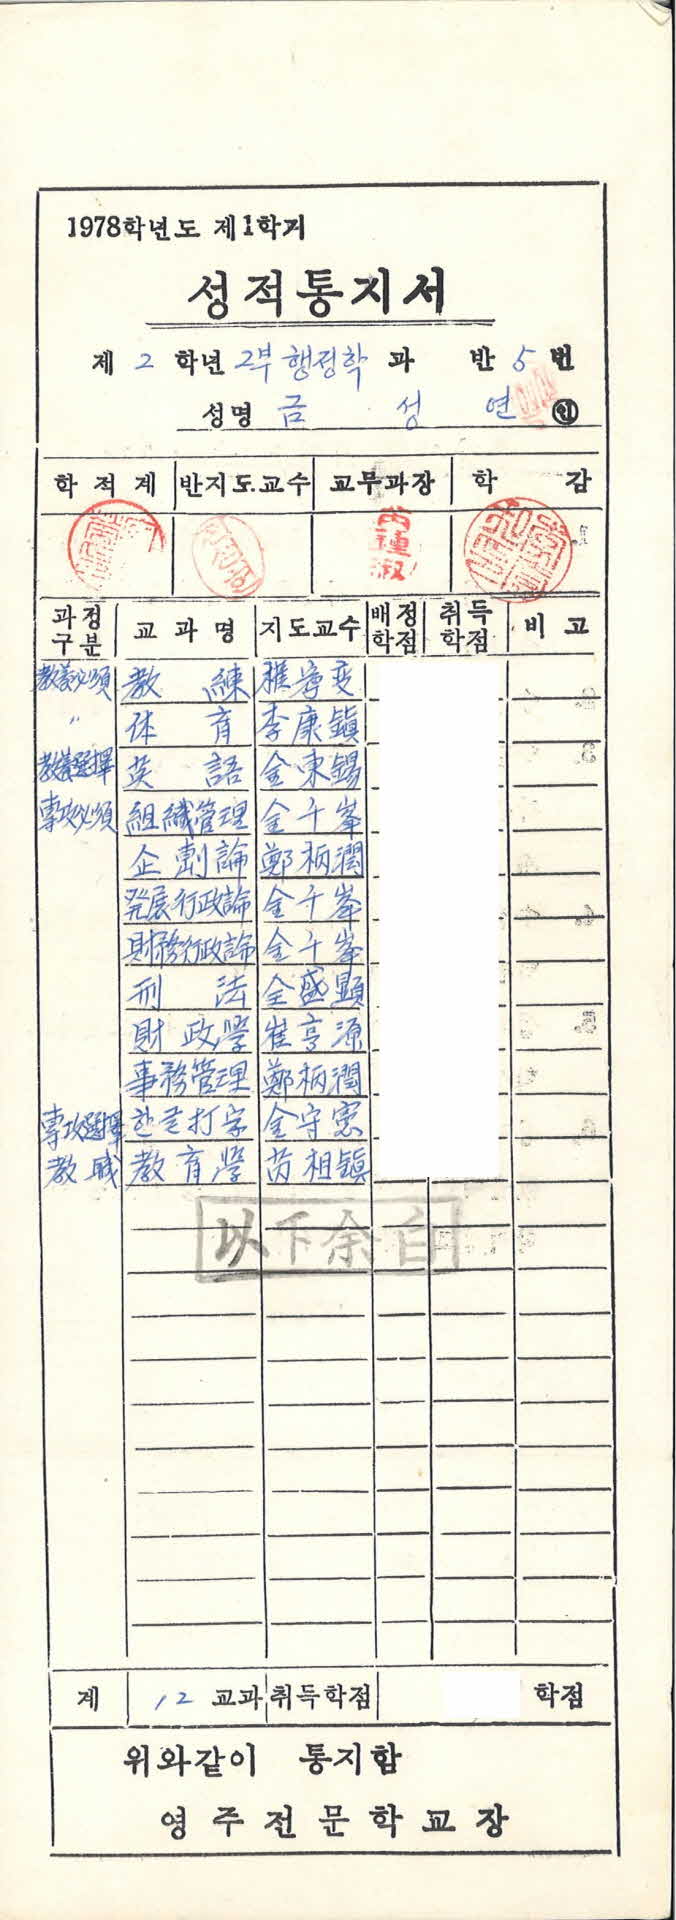 1978학년도 제1학기
성적통지서
제 2 학년 2부 행정학 과 반 5 번
성명 금 성 연 ㊞
학적계 반지도교수 교무과장 학감
과정구분 교과명 지도교수 배정학점 취득학점 비고
教養必須 教練
〃 体育 李康鎭
教養選擇 英語 金東錫
專攻必須 組織管理 金千峯
企劃論 鄭柄潤
発展行政論 金千峯
財務行政論 金千峯
刑法 全盛顯
財政學 崔亨源
事務管理 鄭柄潤
專攻選擇 한글打字 金守憲
教職 教育學 芮相鎭
以下余白
계 12 교과 취득학점 학점
위와같이 통지함
영주전문학교장